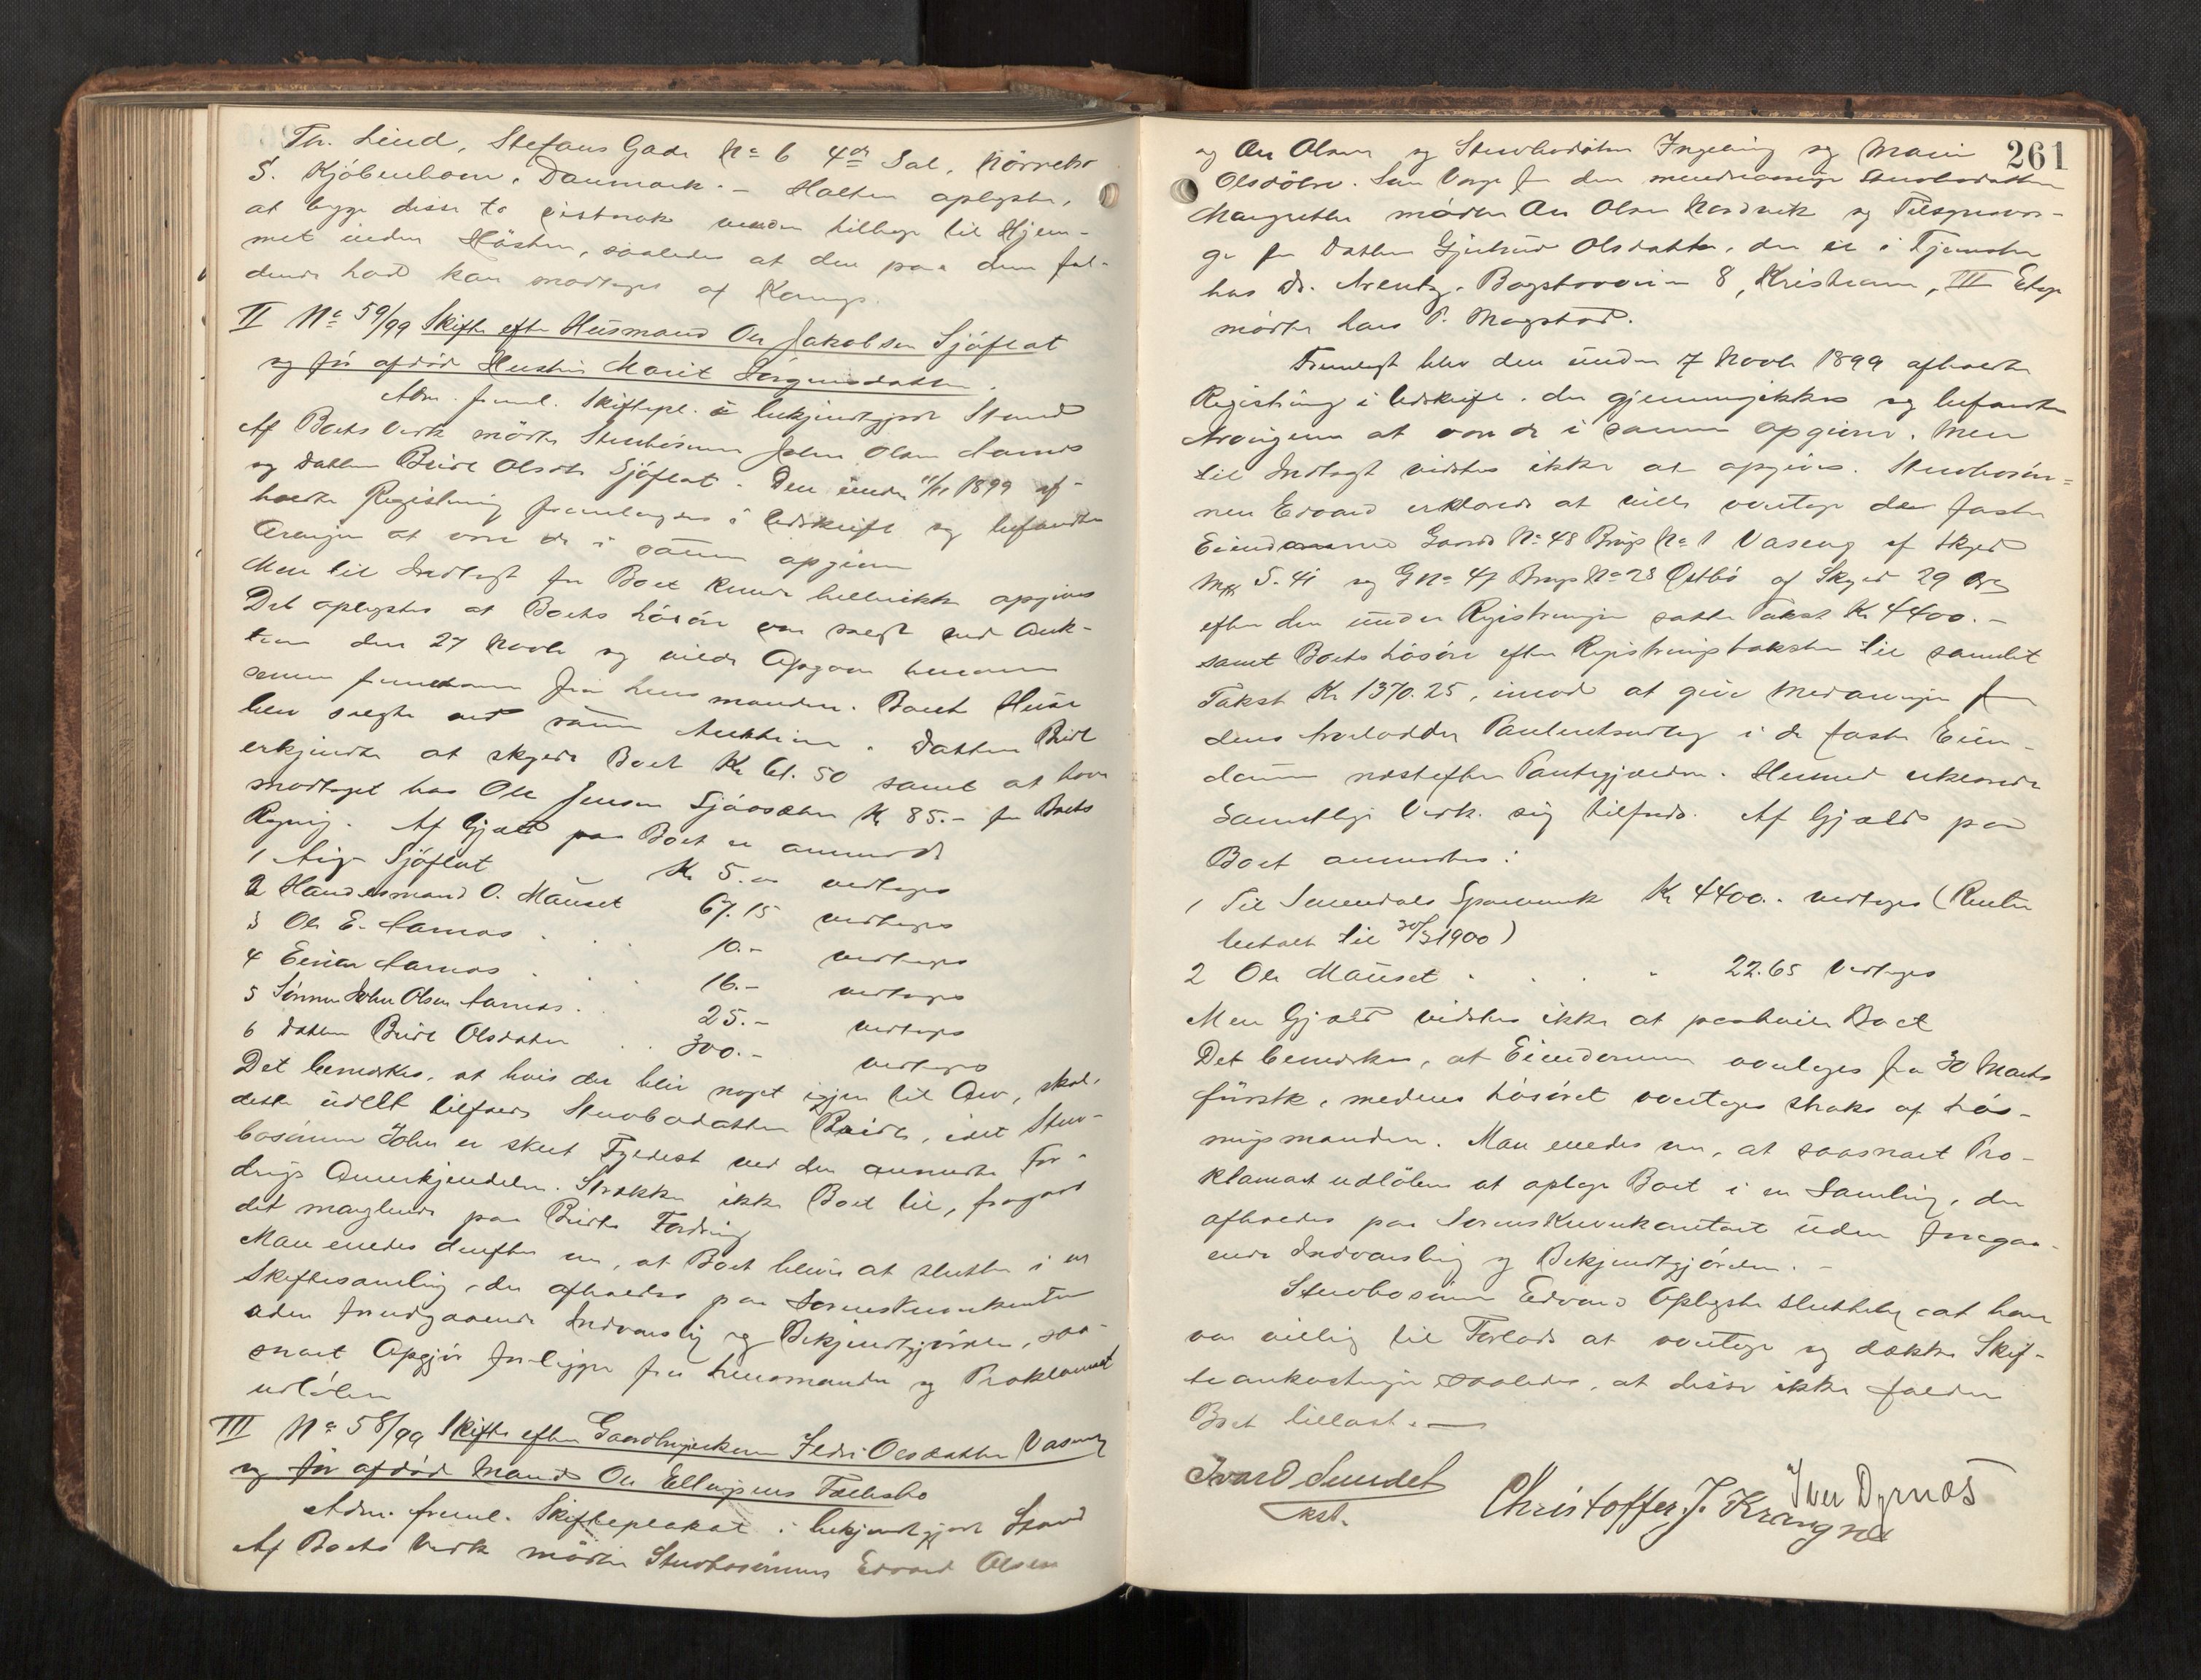 Th. Lind, Stefans Gade No 6 4de Sal, Nörrebro
S. Kjöbenhavn, Danmark. – Halten oplyste,
at begge disse to vistnok vender tilbage til Hjem-
met inden Hösten, saaledes at den paa dem fal-
dende Lod kan modtages af
II No 59/99 Skifte efter Husmand Ole Jakobsen Sjöflot
og för afdöd Hustru Marit Jörgensdatter.
Adm. freml. Skiftepl. i bekjendtgjort Stand
Af Boets Vedk. mödte Stervbösönnen John Olsen Aarnes
og Datteren Beret Olsdtr Sjöflot. Den under 11/11 1899 af-
holdte Registrering fremlagdes i Udskrift og befandtes
Arvingerne at være de i samme opgivne
Mere til Indtægt for Boet kunde hellerikke opgives
Det oplystes at Boets Lösöre var solgt ved Auk-
tion den 27 Novbr og vilde Opgave herom
senere fremkomme fra Lensmanden. Boets Huse
blev solgte ved samme Auktion. Datteren Beret
erkjendte at skylde Boet Kr 61.50 samt at have
modtaget hos Ole Jensen Sjöosæter Kr 85.- for Boets
Regning. Af Gjæld paa Boet er anmeldt
1 Sjöflot Kr 5.00 vedtages
2 Handelsmand O. Mauset 67.15 vedtages
3 Ole E. Aarnes . . 10.- vedtages
4 Einar Aarnes . . 16.- vedtages
5 Sönnen John Olsen Aarnes . . 25.- vedtages
6 Datteren Beret Olsdatter . . 300.- vedtages
Det bemærkes, at hvis der blir noget igjen til Arv, skal
dette udelt tilfalde Stervbodatteren Beret, idet Sterv-
bosönnen John er skeet Fyldest ved den anmeldte For-
drings Anerkjendelse. Strækker ikke Boet til, fragaar
det manglende paa Berets Fordring
Man enedes derefter om, at Boet bliver at slutte i en
Skiftesamling, der afholdes paa Sorenskriverkontoret
uden foregaaende Indvarsling og Bekjendtgjörelse, saa-
snart Opgjör foreligger fra Lensmanden og Proklamaet
udlöber
III No 58/99 Skifte efter Gaardbrugerkone Ildri Olsdatter Vaseng
og för afdöd Mand Ole Ellingsens Fællesbo
Adm. freml. Skifteplakat i bekjendtgjort Stand
Af Boets Vedk. mödte Stervbosönnerne Edvard Olsen
261
og Ole Olsen og Stervbodötrene Ingeborg og Marie
Olsdötre. Som Verge for den mindreaarige Stervbodatter
Margrethe mödte Ole Olsen Nordvik og Tilsynsver-
ge for Datteren Gjertrud Olsdatter, der er i Tjeneste
hos Dr. Arentz, Bogstadveien 8, Kristiania, III Etage
mödte Lars P. Magstad.
Fremlagt blev den under 7 Novbr 1899 afholdte
Registrering i Udskrift, der gjennemgikkes og befandtes
Arvingerne at være de i samme opgivne. Mere
til Indtægt vidstes ikke at opgives. Stervbosön-
nen Edvard erklærede at ville overtage de faste
Eiendomme Gaards No 48 Brugs No 1 Vaseng af Skyld
Mrk 5.41 og G No 47 Brugs No 28 Østbö af Skyld 29 Øre
efter den under Registreringen satte Takst Kr 4400.-
samt Boets Lösöre efter Registreringstaksten til samlet
Takst Kr 1370.25, imod at give Medarvinger for
deres Arvelodder Panteudlæg i de faste Eien-
domme næstefter Pantegjælden. Hermed erklærede
Samtlige Vedk. sig tilfreds. Af Gjæld paa
Boet anmeldtes:
1 Til Surendals Sparebank Kr 4400.- vedtages (Renter
betalt til 30/3 1900)
2 Ole Mauset . . . 22.65 vedtages
Mere Gjæld vidstes ikke at paahvile Boet
Det bemærkes, at Eiendommen overtages fra 30 Marts
förstk., medens Lösöret overtages straks af Lös-
ningsmanden. Man enedes om, at saasnart Pro-
klamaet udlöber at optage Boet i en Samling, der
afholdes paa Sorenskriverkontoret uden foregaa-
ende Indvarsling og Bekjendtgjörelse. –
Stervbosönnen Edvard oplyste sluttelig at han
var villig til Forlods at overtage og dække Skif-
teomkostninger saaledes, at disse ikke falder
Boet tillast. —
Ivar Sundet
kst.
Christoffer J. Krangnes
Iver Dyrnæs